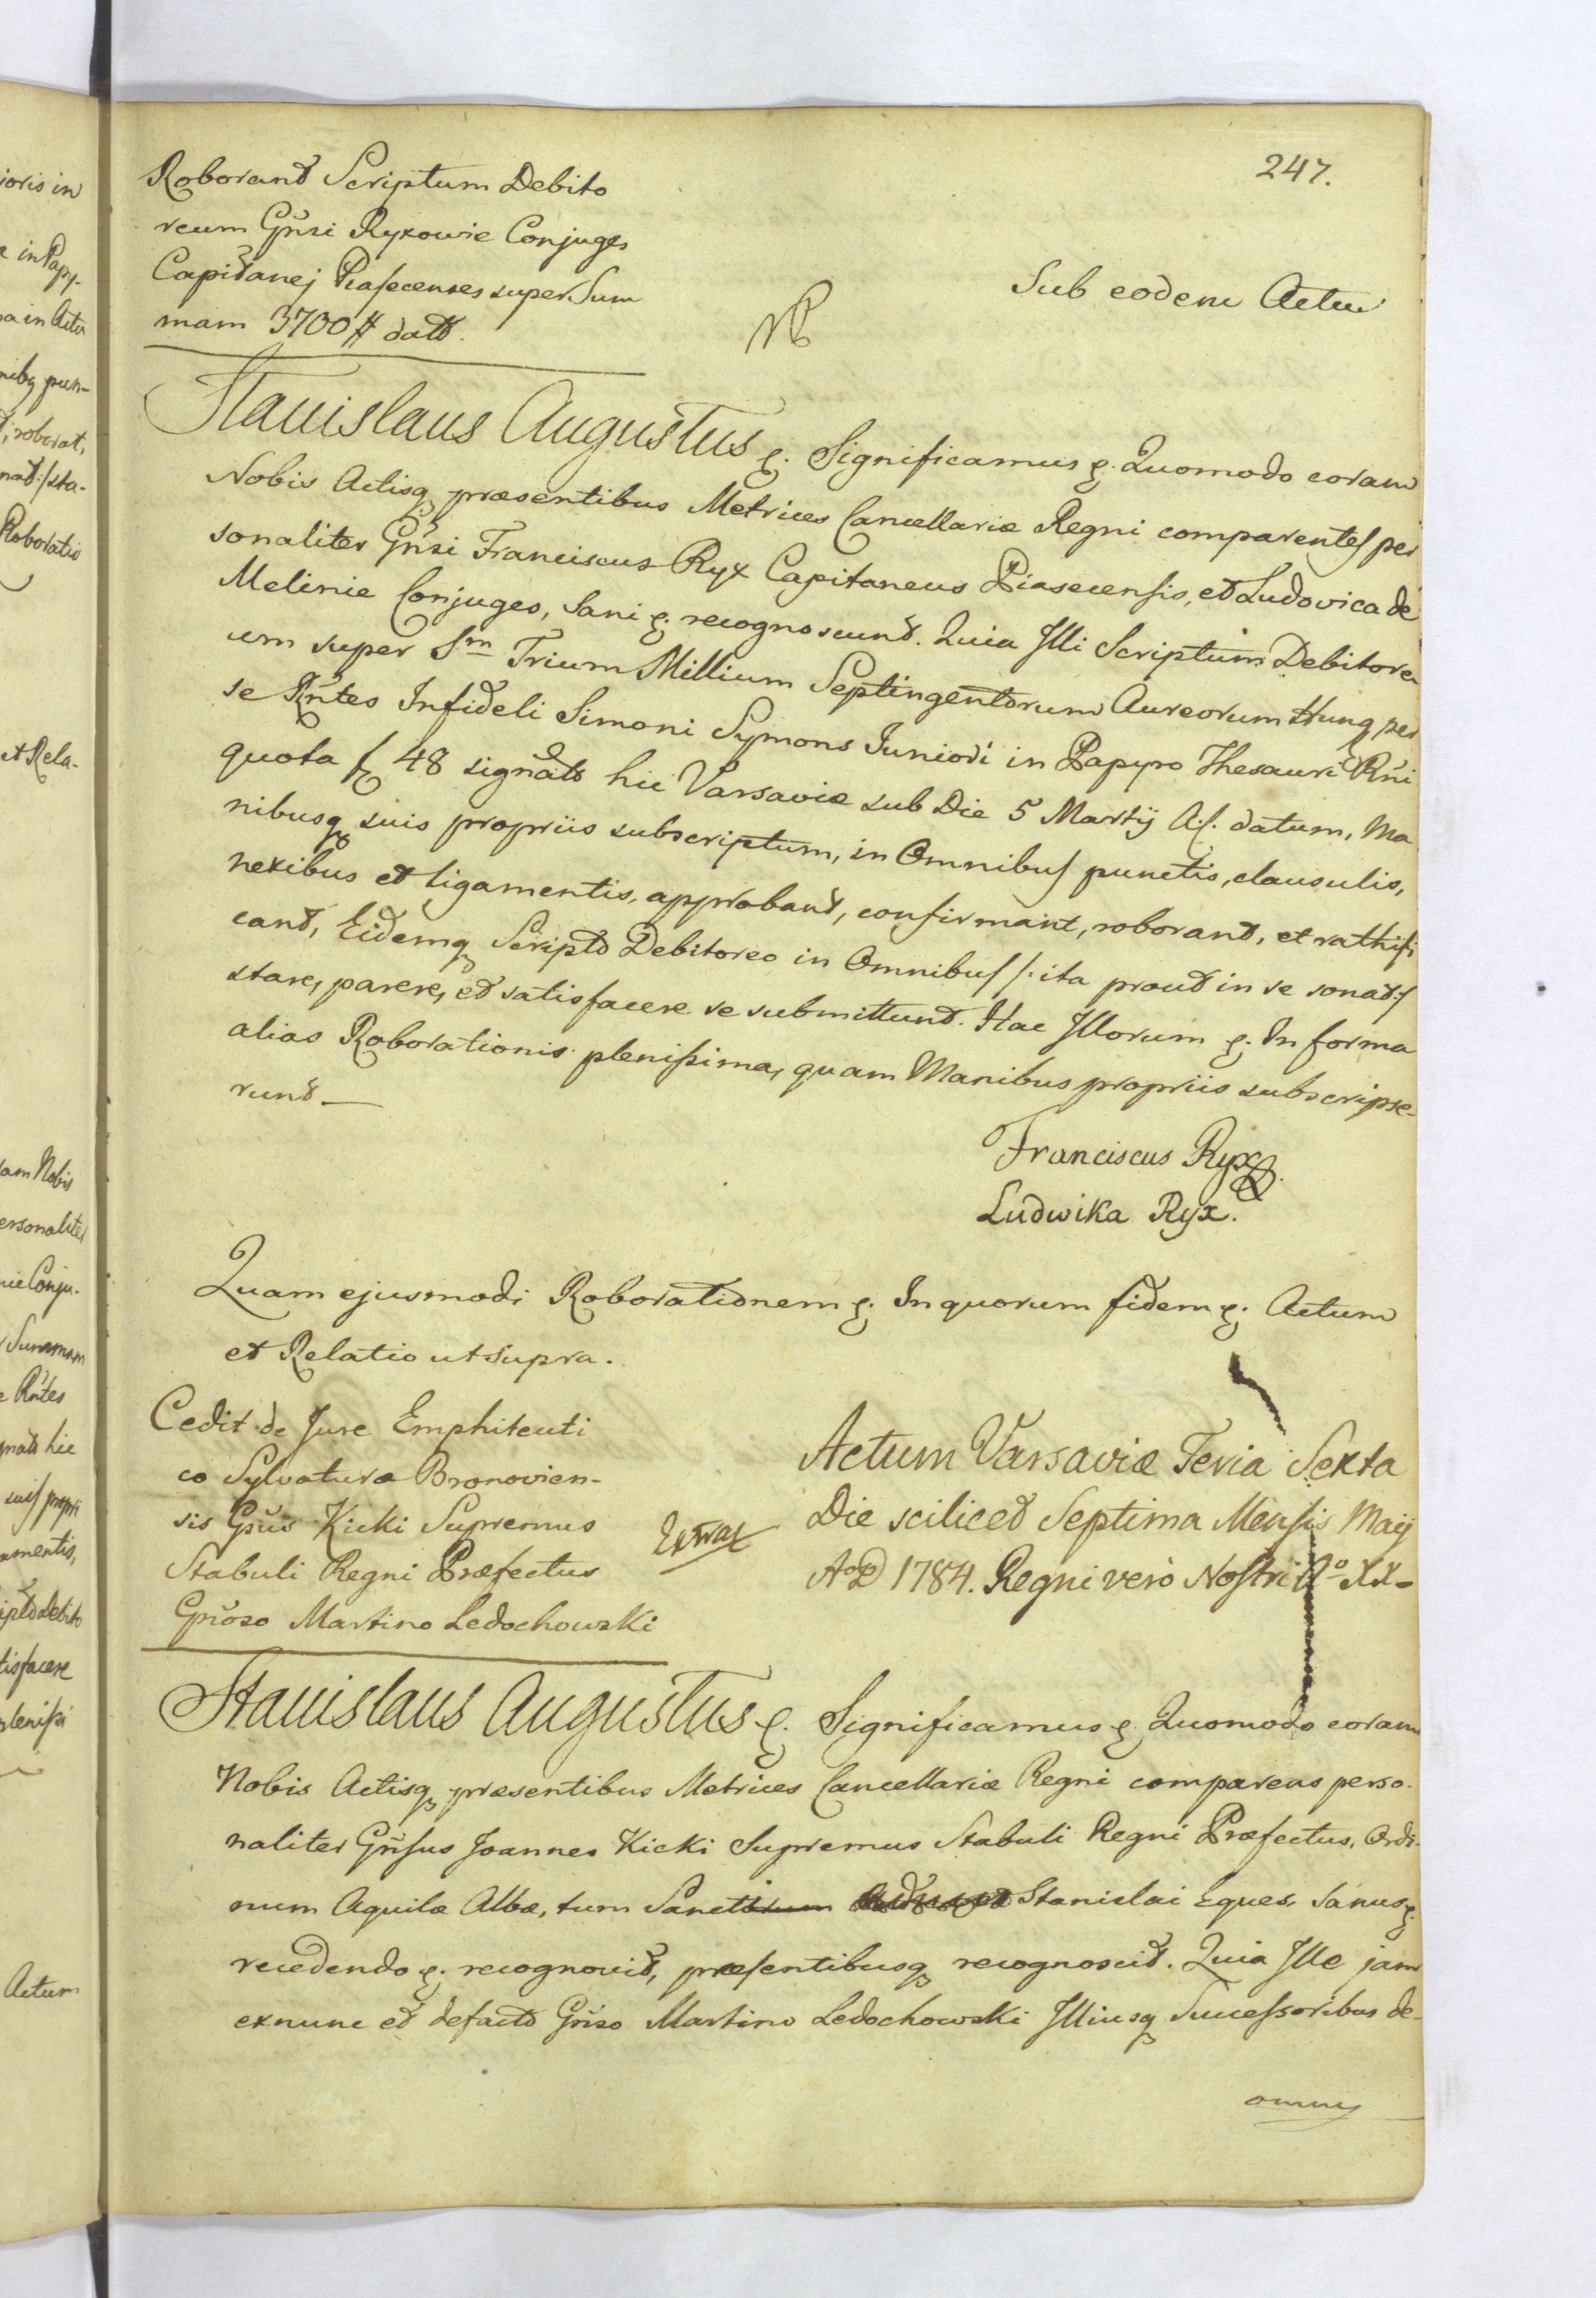 247.
Roborant Scriptum Debito
reum Gñsi Ryxowie Conjuges
Capitanej Piasecenses super Sum
mam 3700 # datt.
Sub eodem Actu
Stanislaus Augustus &. Significamus &. Quomodo coram
Nobis Actisq præsentibus Metrices Cancellariæ Regni comparentes per
sonaliter Gñsi Franciscus Ryx Capitaneus Piasecensis, et Ludovica de
Melinie Conjuges, Sani &. recognoscunt. Quia Illi Scriptum Debitore
um super Sm Trium Millium Septingentorum Aureorum Hung per
se Rñtes Infideli Simoni Symons Juniori in Papyro Thesauri Rñi
quota f 48 signato hic Varsaviæ sub Die 5 Martij A.f. datum, Ma
nibusq suis propriis subscriptum, in Omnibus punctis, clausulis,
nexibus et ligamentis, approbant, confirmant, roborant, et rathifi
cant, Eidemq Scripto Debitoreo in Omnibus /: ita prout in se sonat :/
stare, parere, et satisfacere se submittunt. Hac Illorum &. In forma
alias Roborationis plenissima, quam Manibus propriis subscripse-
runt_
Franciscus Ryx
Ludwika Ryx.
Quam ejusmodi Roborationem &. In quorum fidem &. Actum
et Relatio ut supra.
Cedit de Jure Emphiteuti
co Sylvaturæ Bronovien-
sis Gñus Kicki Supremus
Stabuli Regni Præfectus
Gñoso Martino Ledochowski
Extrax
Actum Varsaviæ Feria Sexta
Die scilicet Septima Mensis Maij
AoD 1784. Regni verò Nostri Aº XX-
Stanislaus Augustus &. Significamus &. Quomodo coram
Nobis Actisq præsentibus Metrices Cancellariæ Regni comparens perso-
naliter Gñsus Joannes Kicki Supremus Stabuli Regni Præfectus, Ordi-
num Aquilæ Albæ, tum Sancti Stanislai Eques, Sanus &.
recedendo &. recognovit, præsentibusq recognoscit. Quia Ille jam
exnunc et defacto Gñso Martino Ledochowski Illiusq Successoribus de-
omni